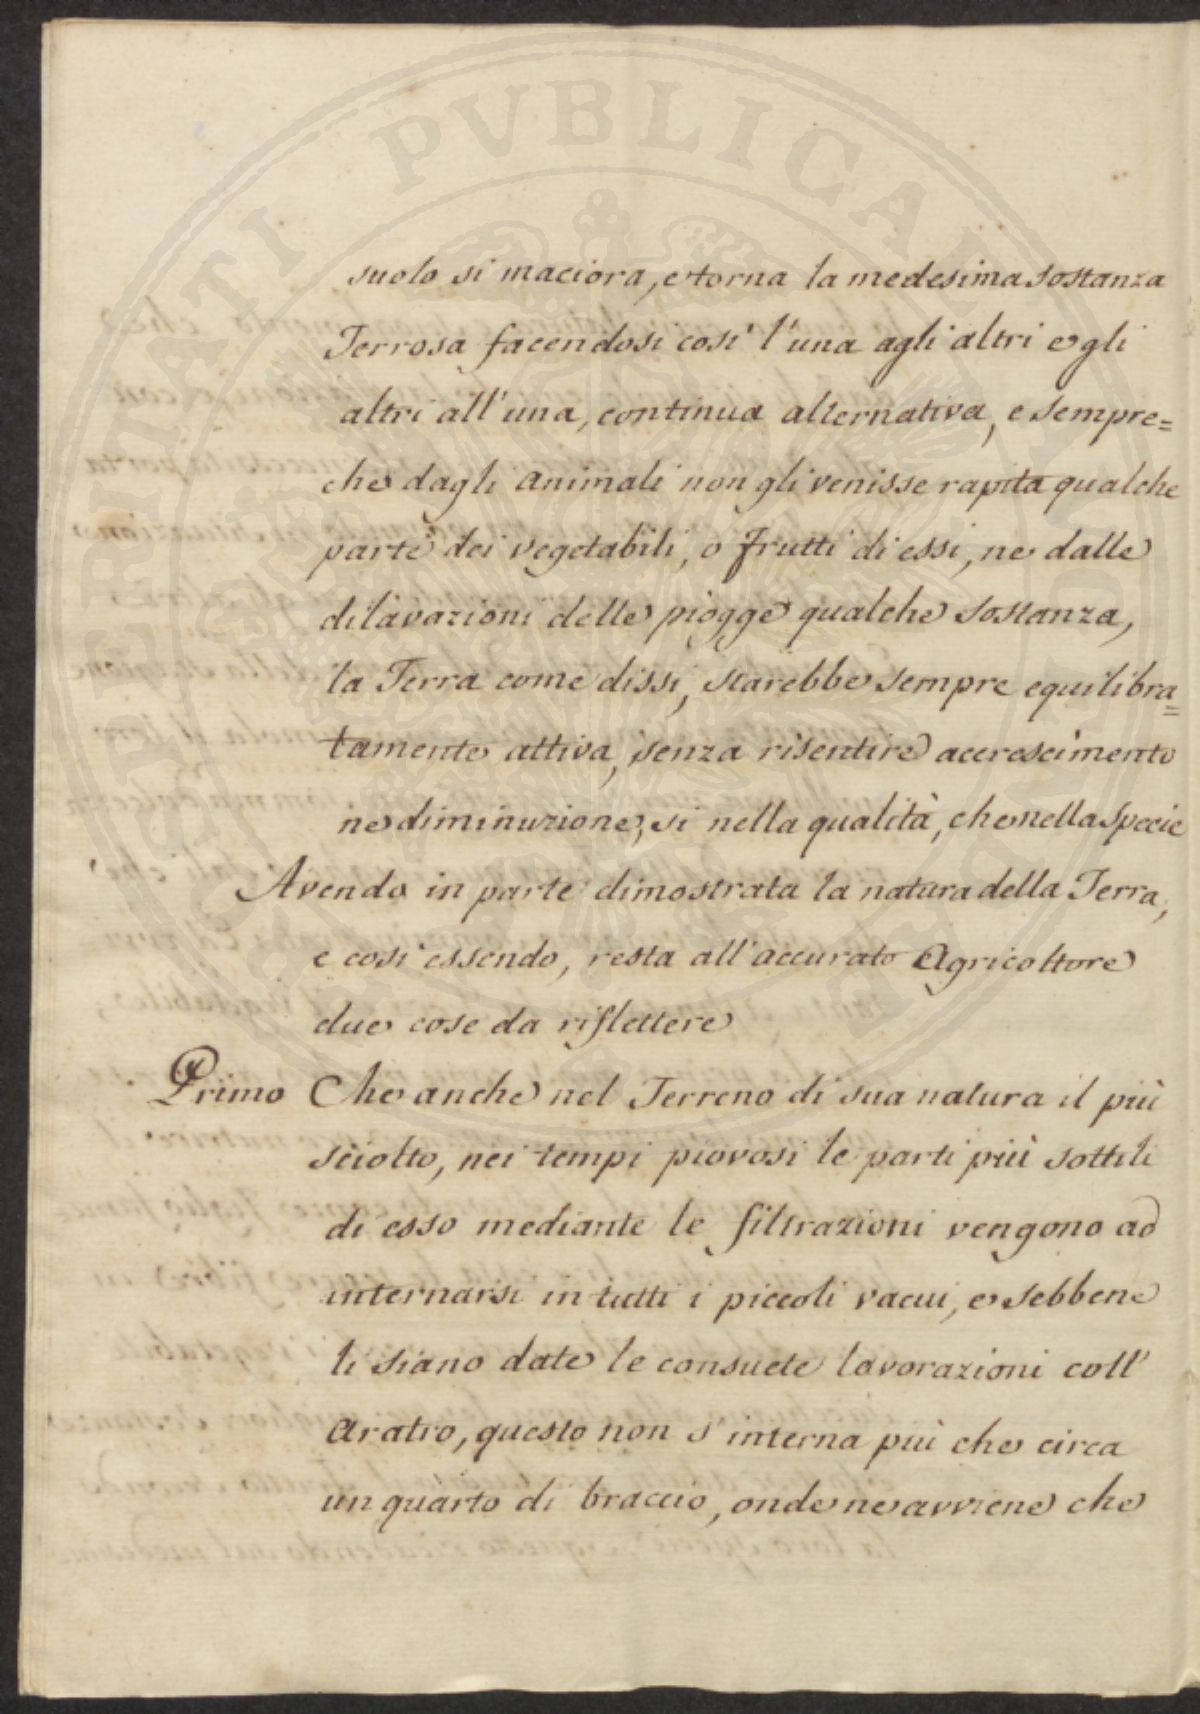 suolo si maciora, e torna la medesima sostanza
Terrosa facendosi così l'una agli altri e gli
altri all'una, continua alternativa, e sempre=
che dagli animali non gli venisse rapita qualche
parte dei vegetabili, o frutti di essi, ne dalle
dilavazioni delle piogge qualche sostanza,
la Terra come dissi, starebbe sempre equilibra=
tamente attiva, senza risentire accrescimento
ne diminuzione, si nella qualità, che nella specie
Avendo in parte dimostrata la natura della Terra,
e così essendo, resta all'accurato Agricoltore
due cose da riflettere
Primo Che anche nel Terreno di sua natura il più
sciolto, nei tempi piovosi le parti più sottili
di esso mediante le filtrazioni vengono ad
internarsi in tutti i piccoli vacui, e sebbene
li siano date le consuete lavorazioni coll'
Aratro, questo non s'interna più che circa
un quarto di braccio, onde ne avviene che